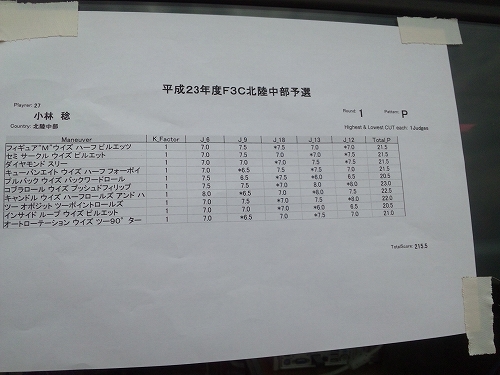 平成23年度F3C北陸中部予選
Player: 27
小林 稔
Country: 北陸中部
Round: 1 Pattern: P
Highest & Lowest CUT each: 1Judges
Maneuver K_Factor J_6 J_9 J_18 J_13 J_12 Total_P
フィギュア"M"ウイズ ハーフ ピルエッツ 1 7.0 7.5 *7.5 7.0 *7.0 21.5
セミ サークル ウイズ ピルエット 1 7.0 7.0 7.5 *7.0 *7.5 21.5
ダイヤモンド スリー 1 7.0 7.0 *7.0 7.5 *7.5 21.5
キューバンエイト ウイズ ハーフ フォーポイ 1 7.0 *6.5 7.5 *7.5 7.0 21.5
プルバック ウイズ バックワードロール 1 7.5 6.5 *7.5 *6.0 6.5 20.5
コブラロール ウイズ プッシュドフィリップ 1 7.5 7.5 *7.0 8.0 *8.0 23.0
キャンドル ウイズ ハーフロールズ アンド ハ 1 8.0 *6.5 7.0 *8.0 7.5 22.5
ツー オポジット ツーポイントロールズ 1 7.0 7.5 *7.0 7.5 *8.0 22.0
インサイド ループ ウイズ ピルエット 1 7.0 7.0 *7.0 *6.0 6.5 20.5
オートローテーション ウイズ ツー90°ター 1 7.0 *6.5 7.0 *7.5 7.0 21.0
TotalScore: 215.5